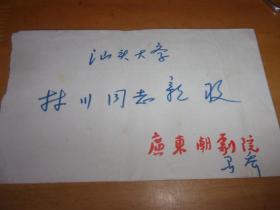 汕头大学
林川同志亲收
廣東潮劇院